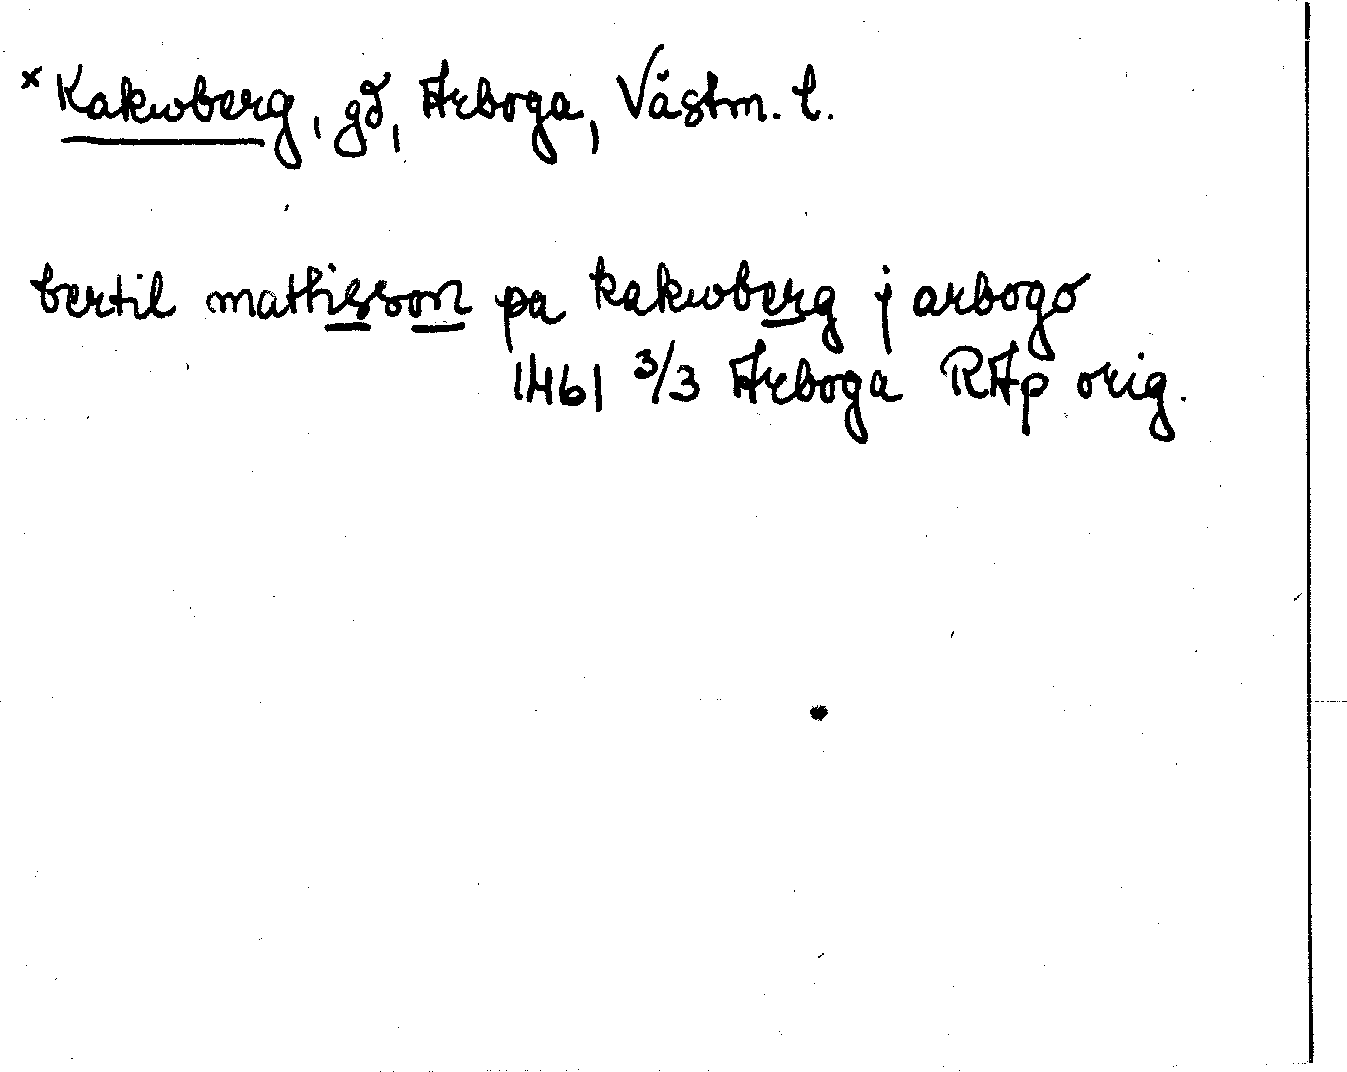 * Kakuoberg, gd, Arboga, Västm. l.
bertil mathisson pa kakuoberg j arbogo
1461 3/3 Arboga RAp orig.